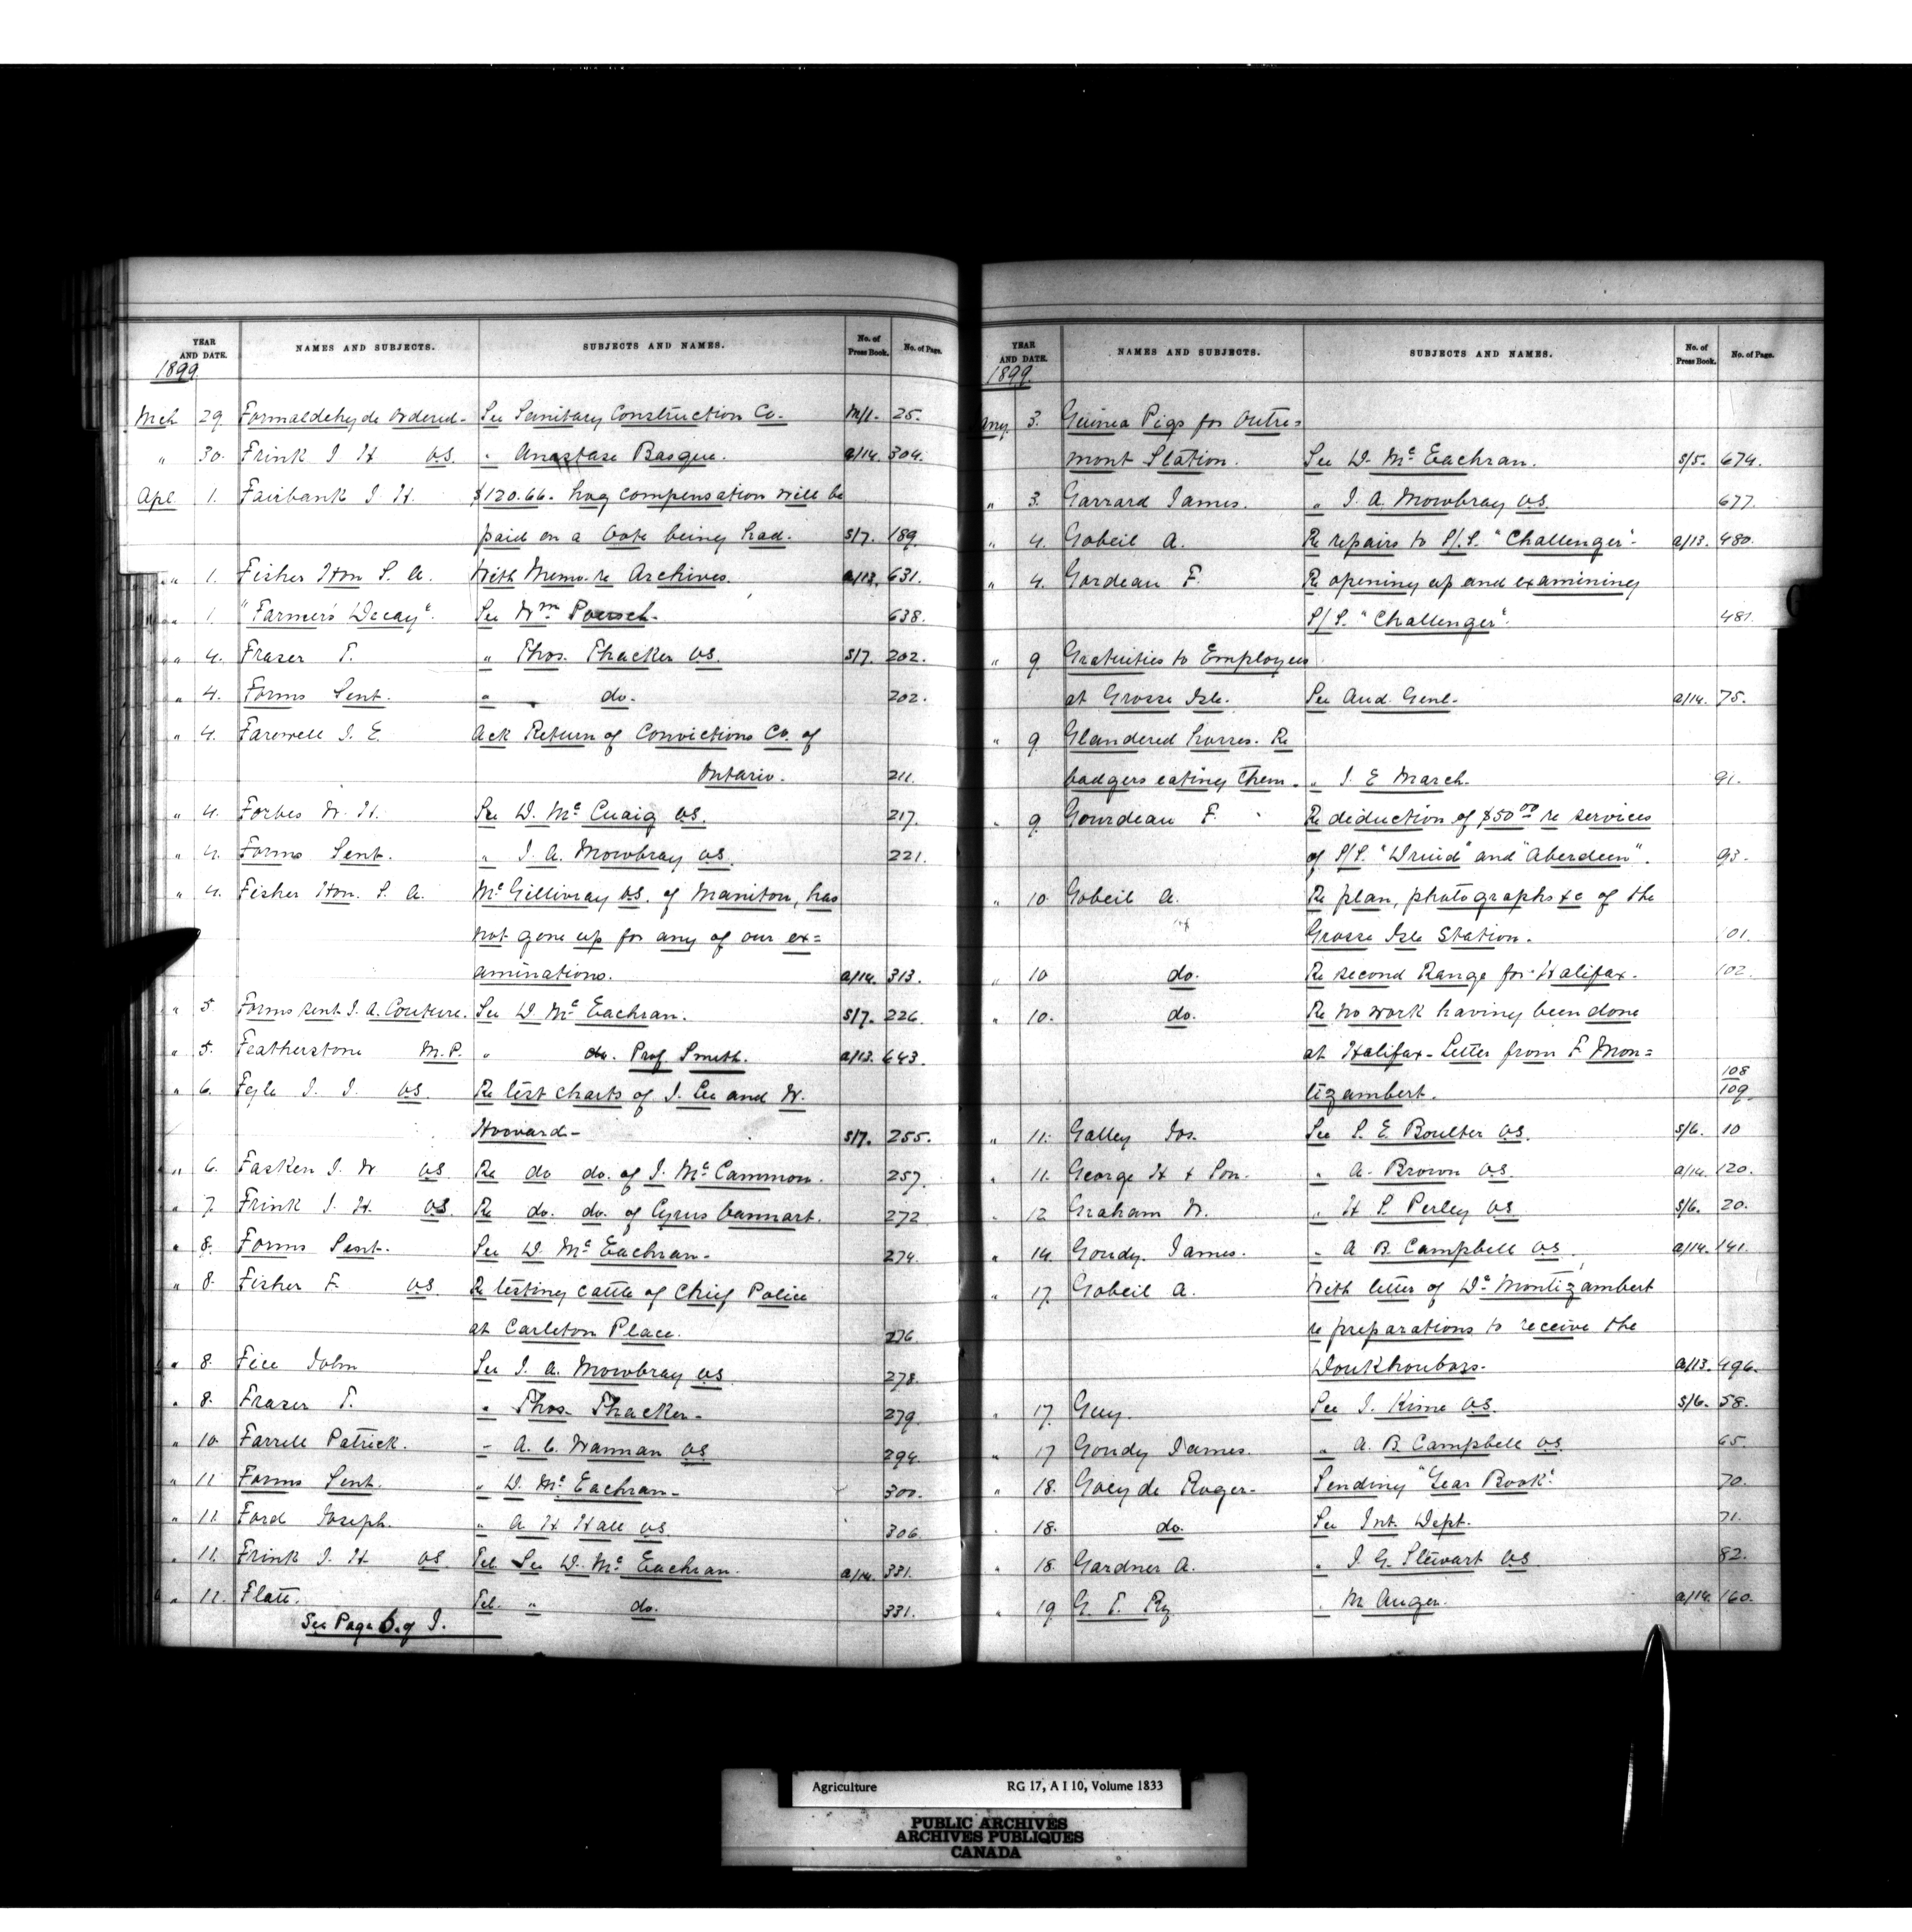 YEAR AND DATE. NAMES AND SUBJECTS. SUBJECTS AND NAMES. No. of Press Book. No. of Page.
1899.
Mch 29. Formaldehyde ordered- See Sanitary Construction Co. M/1. 25.
" 30. Frink J H V.S. " Anastase Basque. a/14. 304.
Apl 1. Fairbank J. H. $120.66. hog compensation will be
paid on a Vote being had. S/7. 189.
" 1. Fisher Hon S. A. With Memo. re Archives. a/13. 631.
" 1. "Farmer's Decay". See Wm Poersch. 638.
" 4. Fraser T. " Thos. Thacker V.S. S/7. 202.
" 4. Forms Sent. " do. 202.
" 4. Farewell J. E. Ack Return of Convictions Co. of
Ontario. 211.
" 4. Forbes W. H. See D. Mc Cuaig V.S. 217.
" 4. Forms Sent. " J. A. Mowbray V.S. 221.
" 4. Fisher Hon. S. A. Mc Gillivray V.S. of Maniton, has
not gone up for any of our ex=
aminations. a/14. 313.
" 5. Forms sent J. A. Couture. See D Mc Eachran. S/7. 226
" 5. Featherstone M.P. " do. Prof. Smith. a/13. 643.
" 6. Fyle J. J. V.S. Re test charts of J. Lee and W.
Howard- S/7. 255.
" 6. Fasken J. W V.S. Re do do. of J. Mc Cammon. 257.
" 7. Frink J. H. V.S. Re do. do. of Cyrus Cannart. 272
" 8. Forms Sent. See D. Mc Eachran- 274.
" 8. Fisher F. V.S. Re testing cattle of Chief Police
at Carleton Place. 276
" 8. Fice John See J. A. Mowbray V.S. 278.
" 8. Fraser T. " Thos. Thacker- 279.
" 10 Farrell Patrick. " A. C. Wanman V.S. 294.
" 11 Forms Sent. " D. Mc Eachran- 300.
" 11. Ford Joseph. " A H Hall V.S. 306.
" 11. Frink J. H. V.S. Tel. See D. Mc Eachran. a/14. 331.
" 11. Flatt. Tel. " do. 331.
See Page 6. of J.
YEAR AND DATE. NAMES AND SUBJECTS. SUBJECTS AND NAMES. No. of Press Book. No. of Page.
1899.
Jany. 3. Guinea Pigs for Outre=
mont Station. See D. Mc Eachran. S/5. 674.
" 3. Garrard James. " J. A. Mowbray V.S. 677.
" 4. Gobeil A. Re repairs to S/S. "Challenger". a/13. 480.
" 4. Gordeau F. Re opening up and examining
S/S. "Challenger". 481.
" 9 Gratuities to Employees
at Grosse Isle. See Aud. Genl. a/14. 75.
" 9. Glandered horses. Re
badgers eating them. " J. E March. 91.
" 9. Gourdeau F. Re deduction of $50 00 re services
of S/S. "Druid" and "Aberdeen". 93.
" 10. Gobeil A. Re plan, photographs &c of the
Grosse Isle Station. 101.
" 10 do. Re second Range for Halifax. 102.
" 10. do. Re no work having been done
at Halifax- Letter from F Mon=
108
tizambert. 109
" 11. Galley Jos. See S. E. Boulter V.S. S/6. 10
" 11. George H & Son. " A. Brown V.S. a/14. 120.
" 12 Graham W. " H S Perley V.S S/6. 20.
" 14. Goudy. James. " A B Campbell V.S. a/14. 141.
" 17. Gobeil A. With letter of Dr Montizambert
re preparations to receive the
Doukhoubors. a/13. 496.
" 17. Guy. See J. Kime V.S. S/6. 58.
" 17 Goudy James. " A. B Campbell V.S. 65.
" 18. Goey de Roger- Sending "Year Book". 70.
" 18. do. See Int. Dept. 71.
" 18. Gardner A. " J. G. Stewart V.S 82.
" 19 G. T. Ry " M. Auger. a/14. 160.
Agriculture RG 17, A I 10, Volume 1833
PUBLIC ARCHIVES
ARCHIVES PUBLIQUES
CANADA